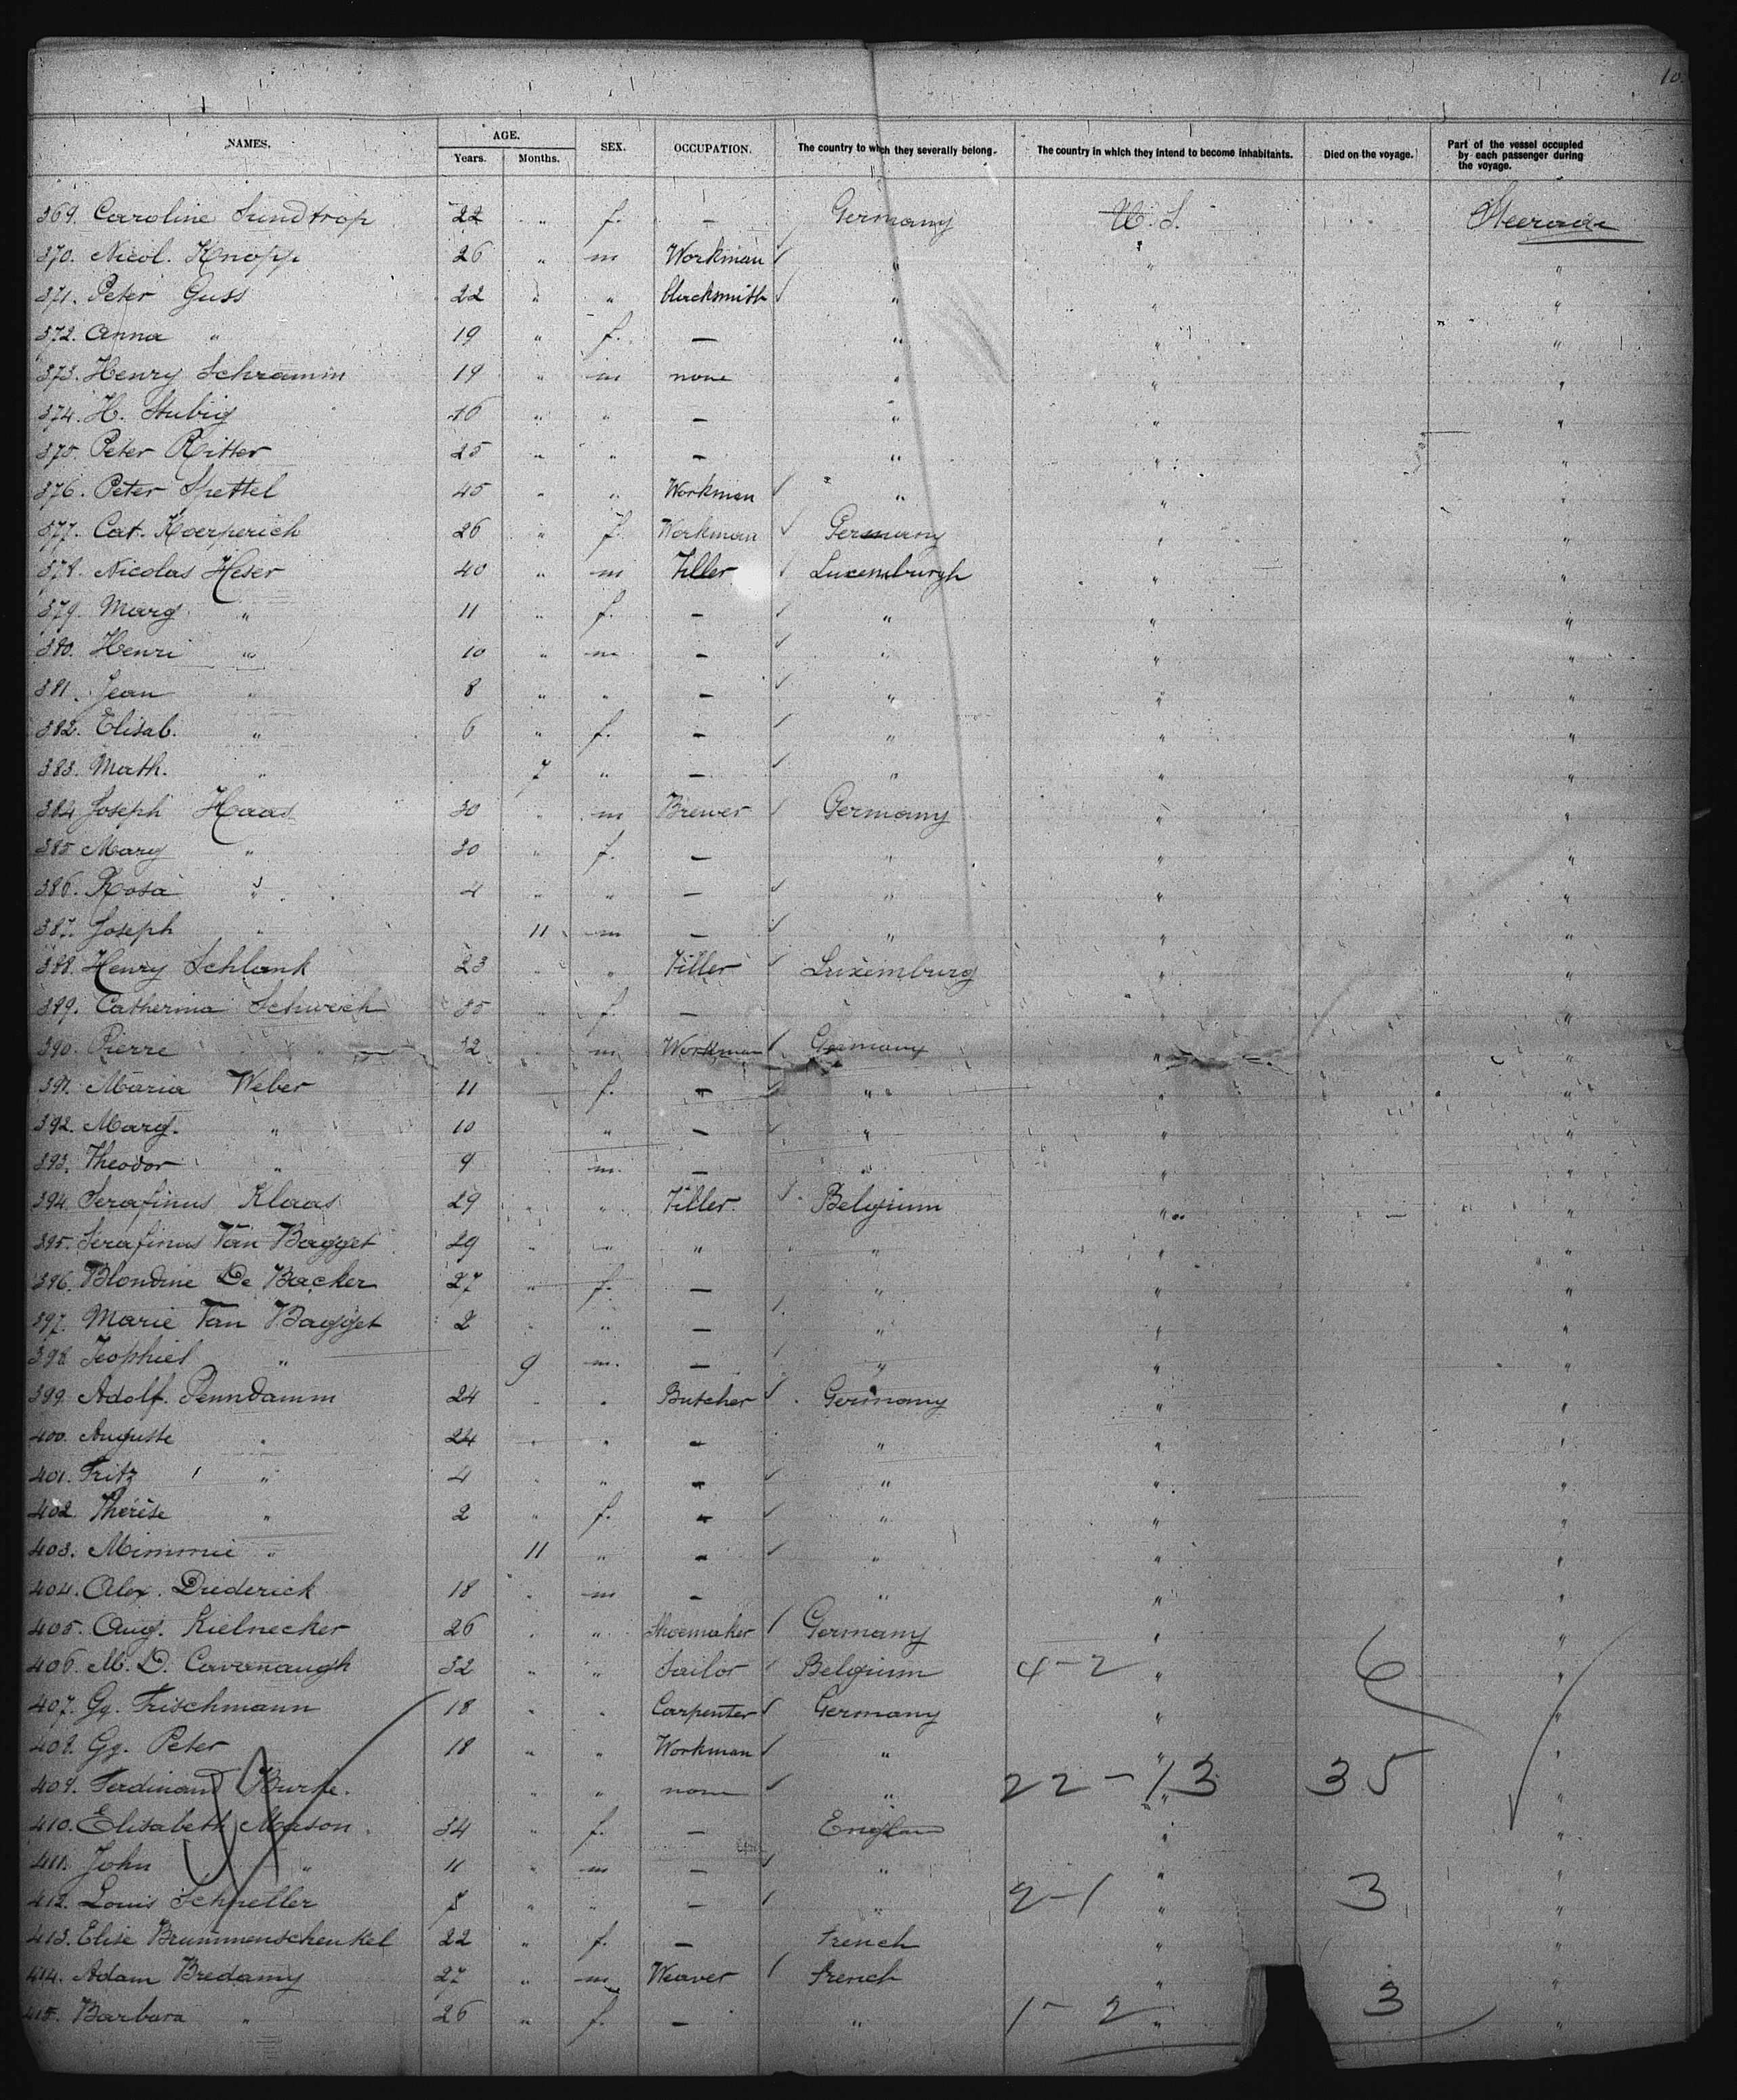 10
NAMES. AGE. SEX. OCCUPATION. The country to which they severally belong. The country in which they intend to become inhabitants. Died on the voyage. Part of the vessel occupied by each passenger during the voyage.
Years. Months.
369. Caroline Sundtrop 22 " f. — Germany U. S. Steerage
370. Nicol. Knopp 26 " m Workman ✓ " " "
371. Peter Guss 22 " " blacksmith ✓ " " "
372. Anna " 19 " f. — " " "
373. Henry Schramm 19 " m none " " "
374. H. Stubig 16 " " — " " "
375. Peter Ritter 25 " " — " " "
376. Peter Spettel 45 " " Workman ✓ " " "
377. Cat. Koerperich 26 " f Workman ✓ Germany " "
378. Nicolas Heser 40 " m Tiller ✓ Luxemburgh " "
379. Marg " 11 " f. — ✓ " " "
380. Henri " 10 " m — ✓ " " "
381. Jean " 8 " " — ✓ " " "
382. Elisab. " 6 " f. — ✓ " " "
383. Math. " 7 " — ✓ " " "
384. Joseph Haas 30 " m Brewer ✓ Germany " "
385. Mary " 30 " f. — " " "
386. Rosa " 4 " " — ✓ " " "
387. Joseph " 11 m — ✓ " " "
388. Henry Schlank 23 " " Tiller ✓ Luxemburg " "
389. Catherina Schweich 35 " f. — "
390. Pierre " 12 m Workman ✓ Germany " "
391. Maria Weber 11 f. — ✓ " " "
392. Marg. " 10 " — ✓ " " "
393. Theodor " 9 m. — " " "
394. Serafinus Klaas 29 " " Tiller. ✓ Belgium " "
395. Serafinus Van Bagget 29 " " " " " "
396. Blondine De Backer 27 " f. — " " "
397. Marie Van Bagget 2 " " — ✓ " " "
398. Teophiel " 9 m. — ✓ " " "
399. Adolf. Penndamm 24 " " Butcher ✓ Germany " "
400. Auguste " 24 " " — " " "
401. Fritz " 4 " " — ✓ " " "
402. Thérèse " 2 " f. — ✓ " " "
403. Mimmie " 11 " — ✓ " " "
404. Alex. Diederick 18 " m — " " "
405. Aug. Kielnecker 26 " " Shoemaker ✓ Germany " "
406. M. D. Cavanaugh 32 " " Sailor ✓ Belgium 4-2 " 6 "
407. Gg. Frischmann 18 " " Carpenter ✓ Germany " "
408. Gg. Peter 18 " " Workman ✓ " " "
409. Ferdinand " " none ✓ " 22-13 " 35 "
410. Elisabeth Mason. 34 " f. — England " "
411. John " 11 " m — ✓ " " "
412. Louis Schneller " " — ✓ " 2-1 " 3 "
413. Elise Brummenschenkel 22 " f. — French " "
414. Adam Bredamy 27 " m Weaver ✓ French " "
415. Barbara " 26 " f. — " 1-2 " 3 "